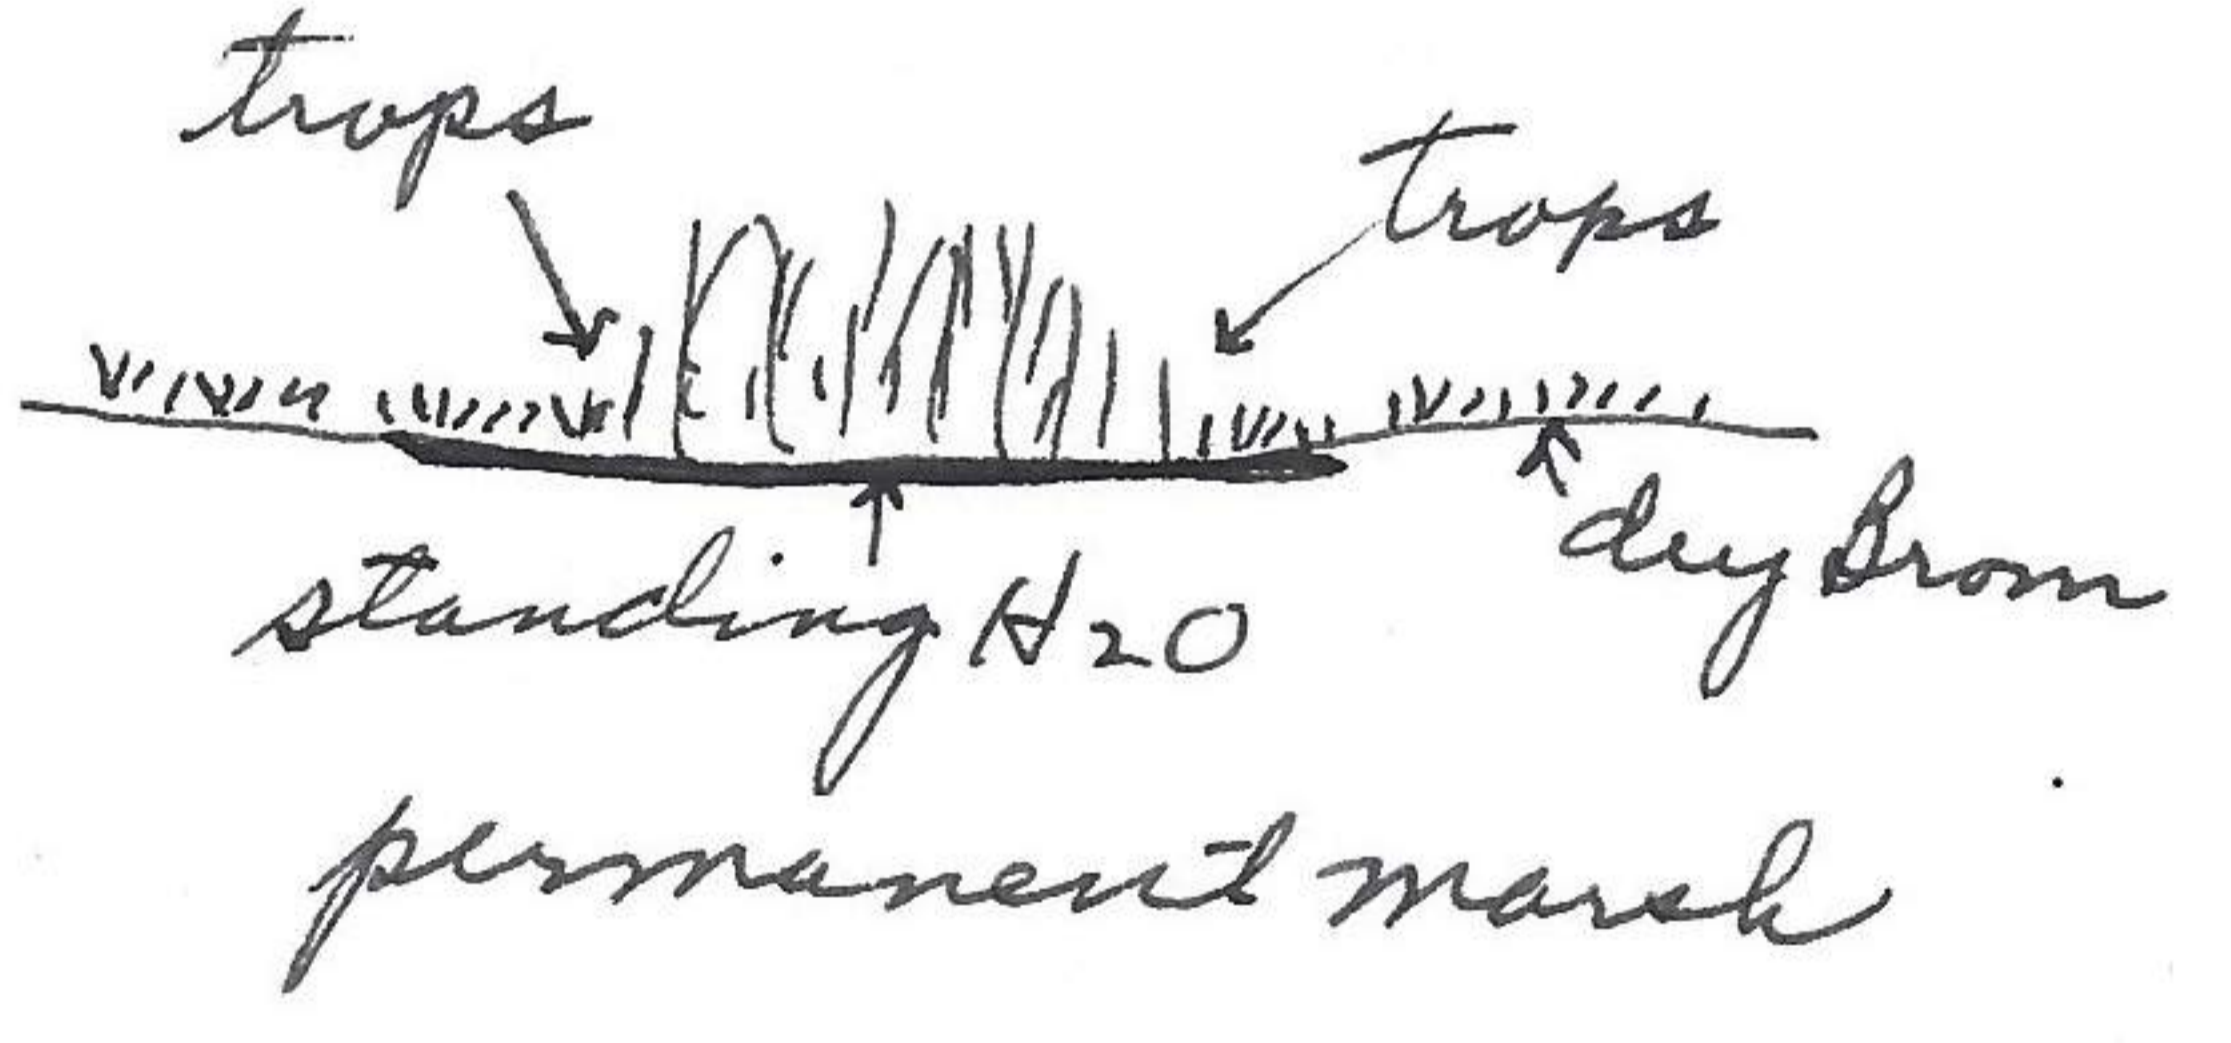 trops
trops
dry Brom
standing H2O
permanent marsh